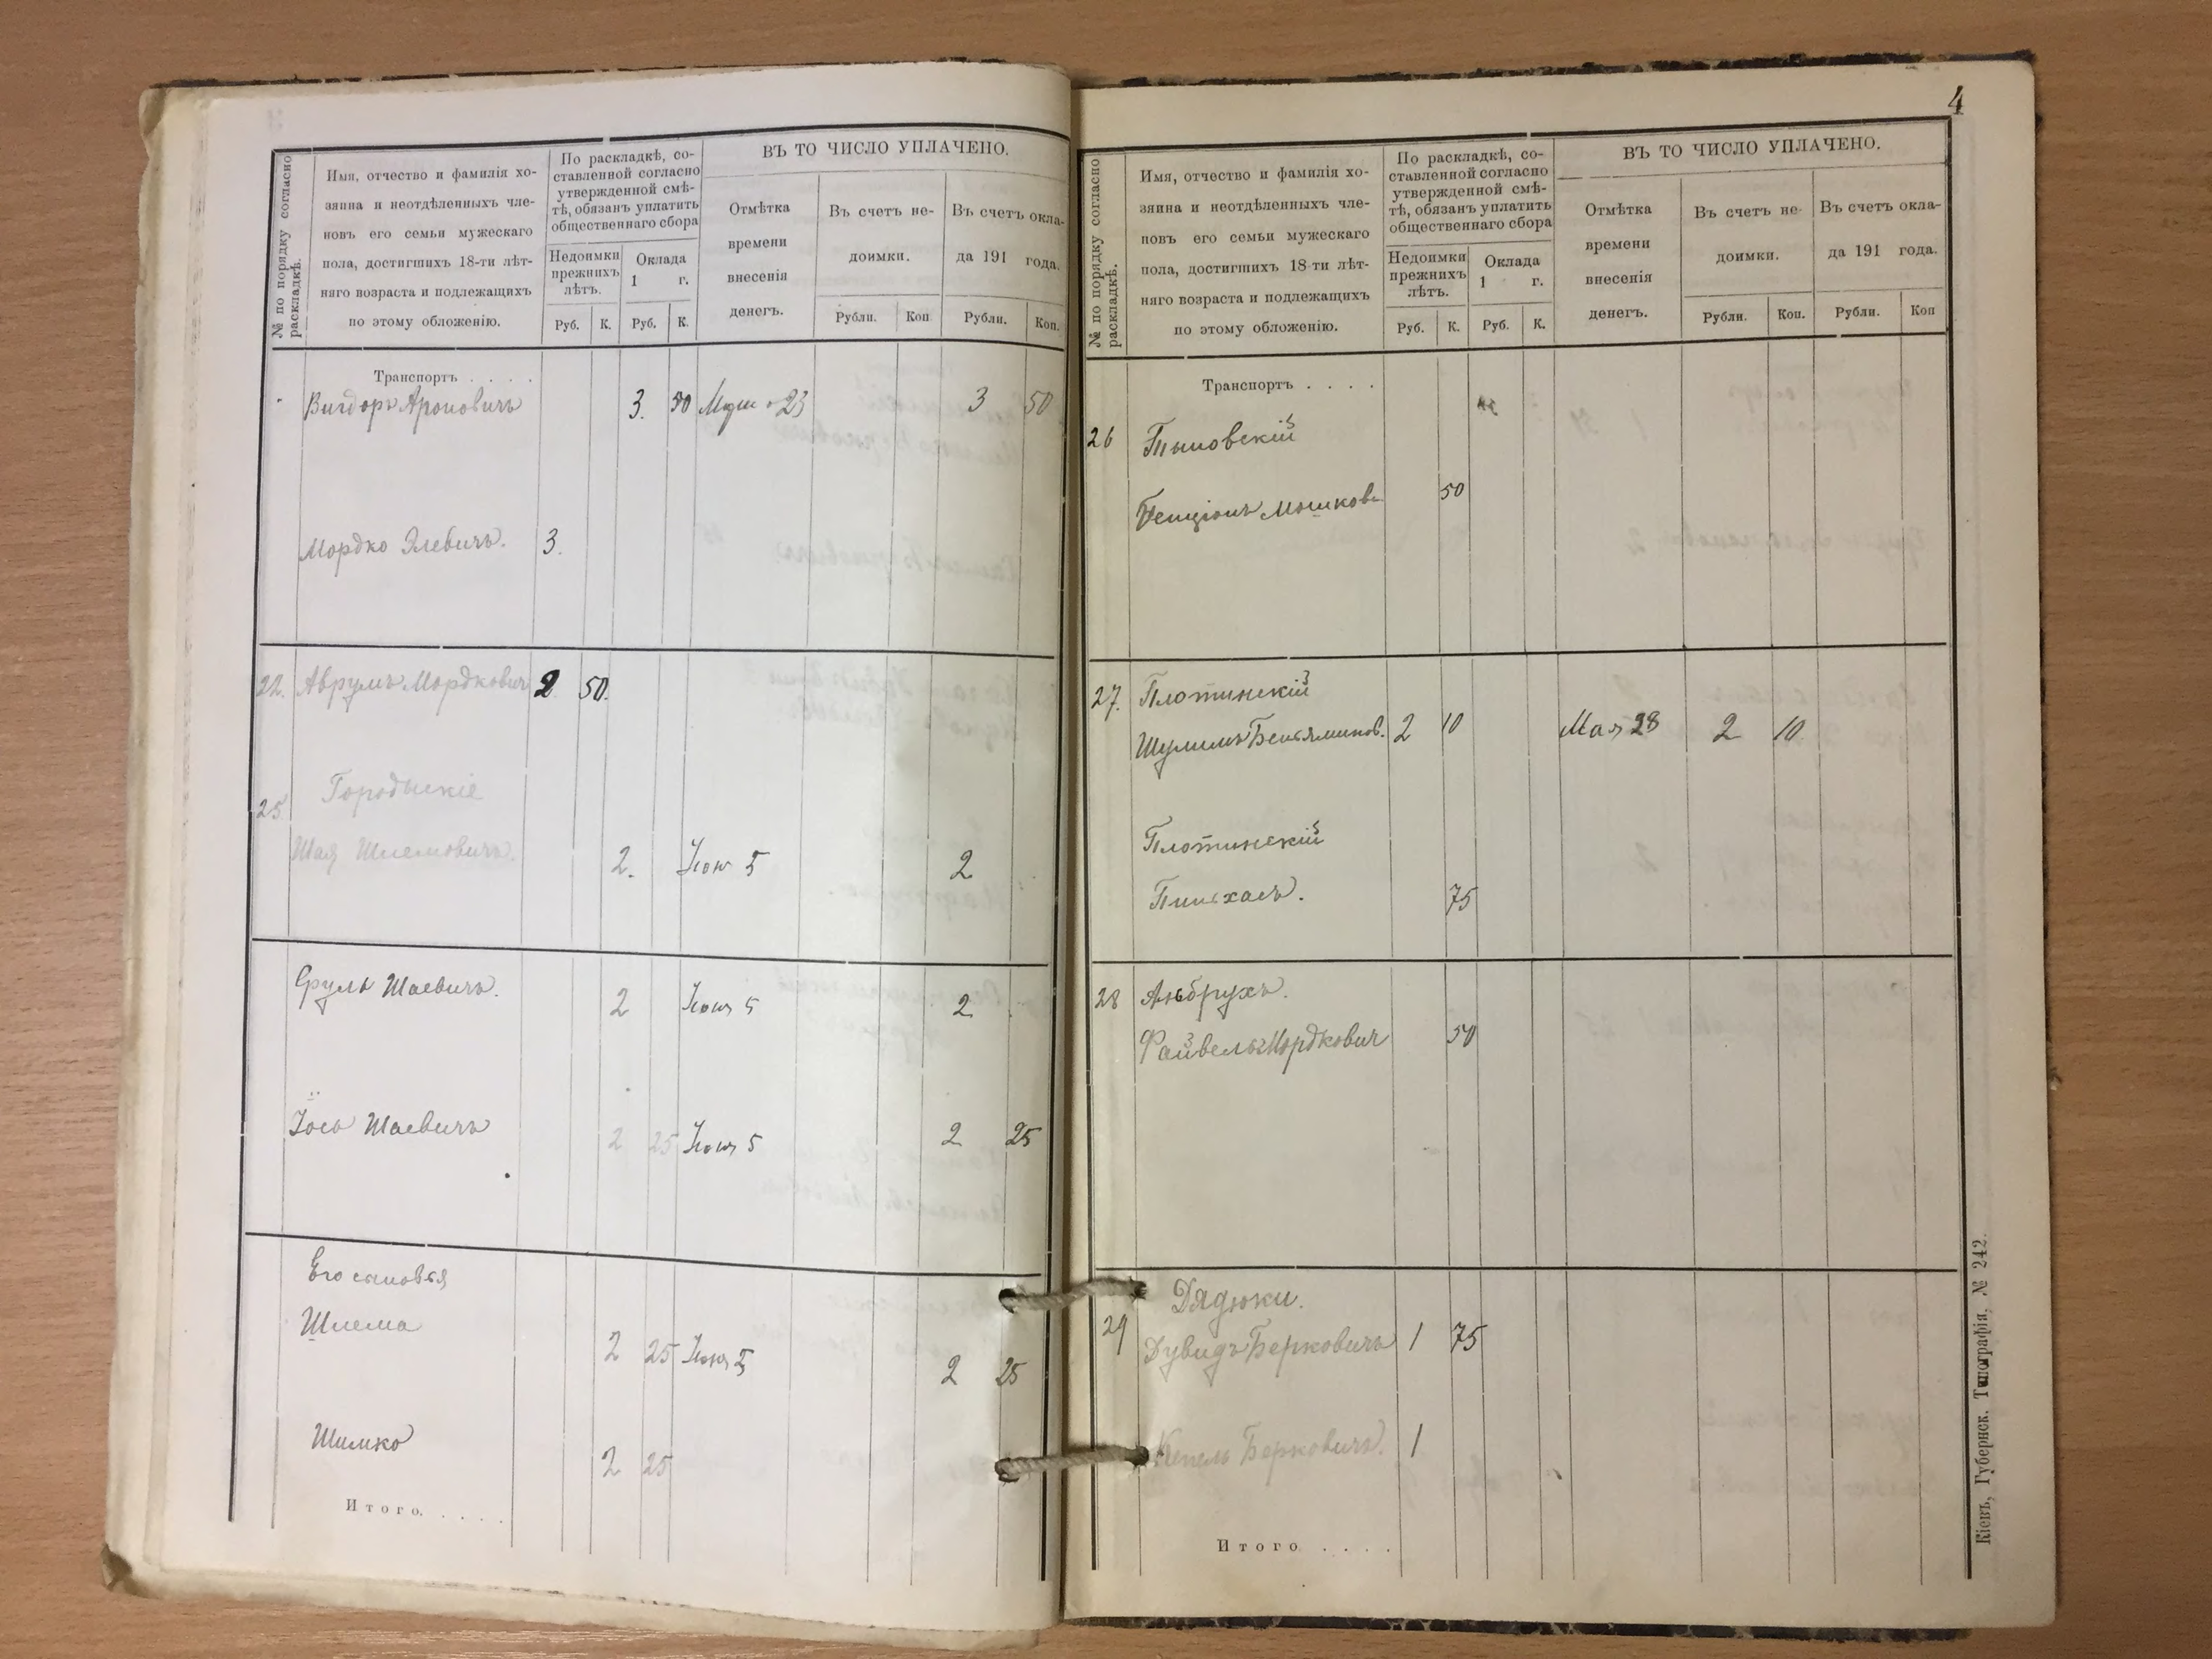 № по порядку согласно
раскладкѣ.
Имя, отчество и фамилія хо-
зяина и неотдѣленныхъ чле-
новъ его семьи мужескаго
пола, достигшихъ 18-ти лѣт-
няго возраста и подлежащихъ
по этому обложенію.
По раскладкѣ, со-
ставленной согласно
утвержденной смѣ-
тѣ, обязанъ уплатить
общественнаго сбора
Недоимки
прежнихъ
лѣтъ.
Оклада
1 г.
Руб. К. Руб. К.
ВЪ ТО ЧИСЛО УПЛАЧЕНО.
Отмѣтка
времени
внесенія
денегъ.
Въ счетъ не-
доимки.
Въ счетъ окла-
да 191 года.
Рубли. Коп Рубли. Коп.
Транспортъ . . . .
Вигдоръ Ароновичъ 3. 50 23 3 50
Мордко Элевичъ. 3.
22. Аврумъ Мордковичъ 2 50.
Городискіе
25.
Шая Шлемовичъ. 2. Іюня 5 2
Сруль Шаевичъ. 2 Іюня 5 2
Іось Шаевичъ 2 25 Іюня 5 2 25
Его сыновья
Шлема 2 25 Іюня 5 2 25
Шимко 2 25
Итого. . . . .
4
№ по порядку согласно
раскладкѣ.
Имя, отчество и фамилія хо-
зяина и неотдѣленныхъ чле-
новъ его семьи мужескаго
пола, достигшихъ 18-ти лѣт-
няго возраста и подлежащихъ
по этому обложенію.
По раскладкѣ, со-
ставленной согласно
утвержденной смѣ-
тѣ, обязанъ уплатить
общественнаго сбора
Недоимки
прежнихъ
лѣтъ.
Оклада
1 г.
Руб. К. Руб. К.
ВЪ ТО ЧИСЛО УПЛАЧЕНО.
Отмѣтка
времени
внесенія
денегъ.
Въ счетъ не-
доимки.
Въ счетъ окла-
да 191 года.
Рубли. Коп. Рубли. Коп
Транспортъ . . . .
26
Бенціонъ Мошков 50
27. Плотинскій
Шулимъ Беньяминов. 2 10 Мая 28 2 10
Плотинскій
Пинхасъ. 75
28
Файвель Мордкович 50
Дядюки.
29 Дувидъ Берковичъ 1 75
Кепель Берковичъ. 1
Итого . . . .
Кіевъ, Губернск. Типографія, № 242.